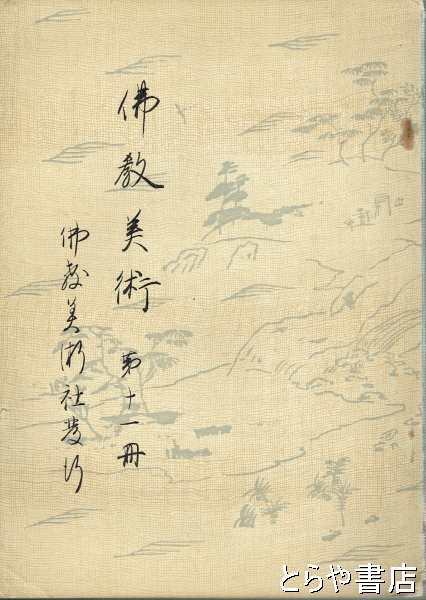 佛教美術 第十一冊
佛教美術社発行
とらや書店